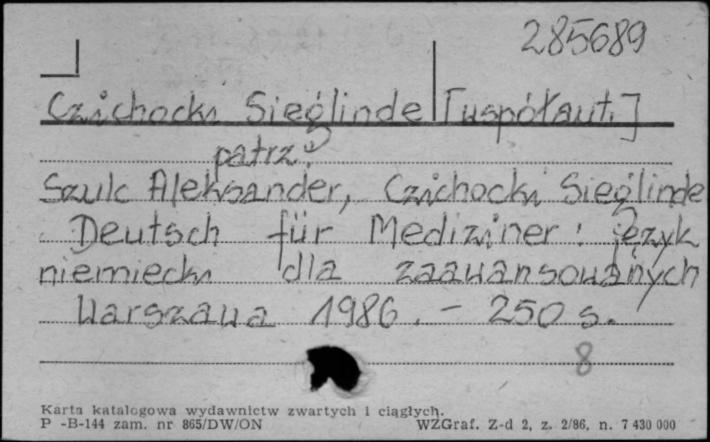 285689
Czichocki Sieglinde [współaut.]
patrz:
Szulc Aleksander, Czichocki Sieglinde
Deutsch für Mediziner : język
niemiecki dla zaawansowanych
Warszawa 1986 . – 250 s.
8
Karta katalogowa wydawnictw zwartych i ciągłych.
P -B-144 zam. nr 865/DW/ON WZGraf. Z-d 2, z. 2/86, n. 7 430 000